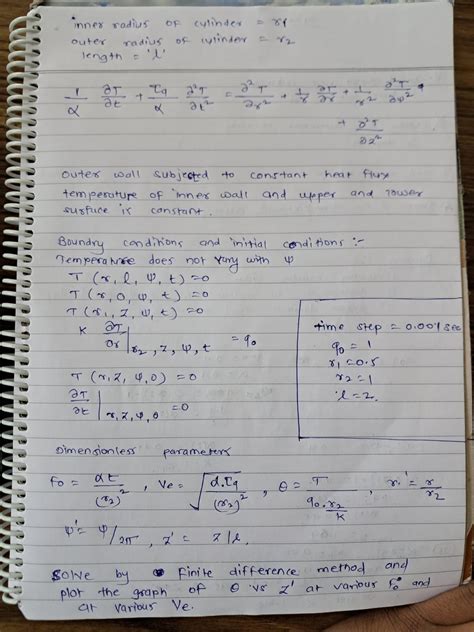 inner radius of cylinder = r1
outer radius of cylinder = r2
length = 'l'
1/α ∂T/∂t + τq/α ∂²T/∂t² = ∂²T/∂r² + 1/r ∂T/∂r + 1/r² ∂²T/∂ψ²
+ ∂²T/∂z²
outer wall subjected to constant heat flux
temperature of inner wall and upper and lower
surface is constant.
Boundry conditions and initial conditions :-
Temperature does not vary with ψ
T (r, l, ψ, t) = 0
T (r, 0, ψ, t) = 0
T (r1, z, ψ, t) = 0
K ∂T/∂r | r2, z, ψ, t = q0
T (r, z, ψ, 0) = 0
∂T/∂t | r, z, ψ, 0 = 0
time step = 0.001 sec
q0 = 1
r1 = 0.5
r2 = 1
l = 2
Dimensionless parameters
Fo = αt/(r2)², Ve = √(α.τq/(r2)²), θ = T/(q0.r2/K), r' = r/r2
ψ' = ψ/2π, z' = z/l.
Solve by Finite difference method and
plot the graph of θ vs z' at various Fo and
at various Ve.